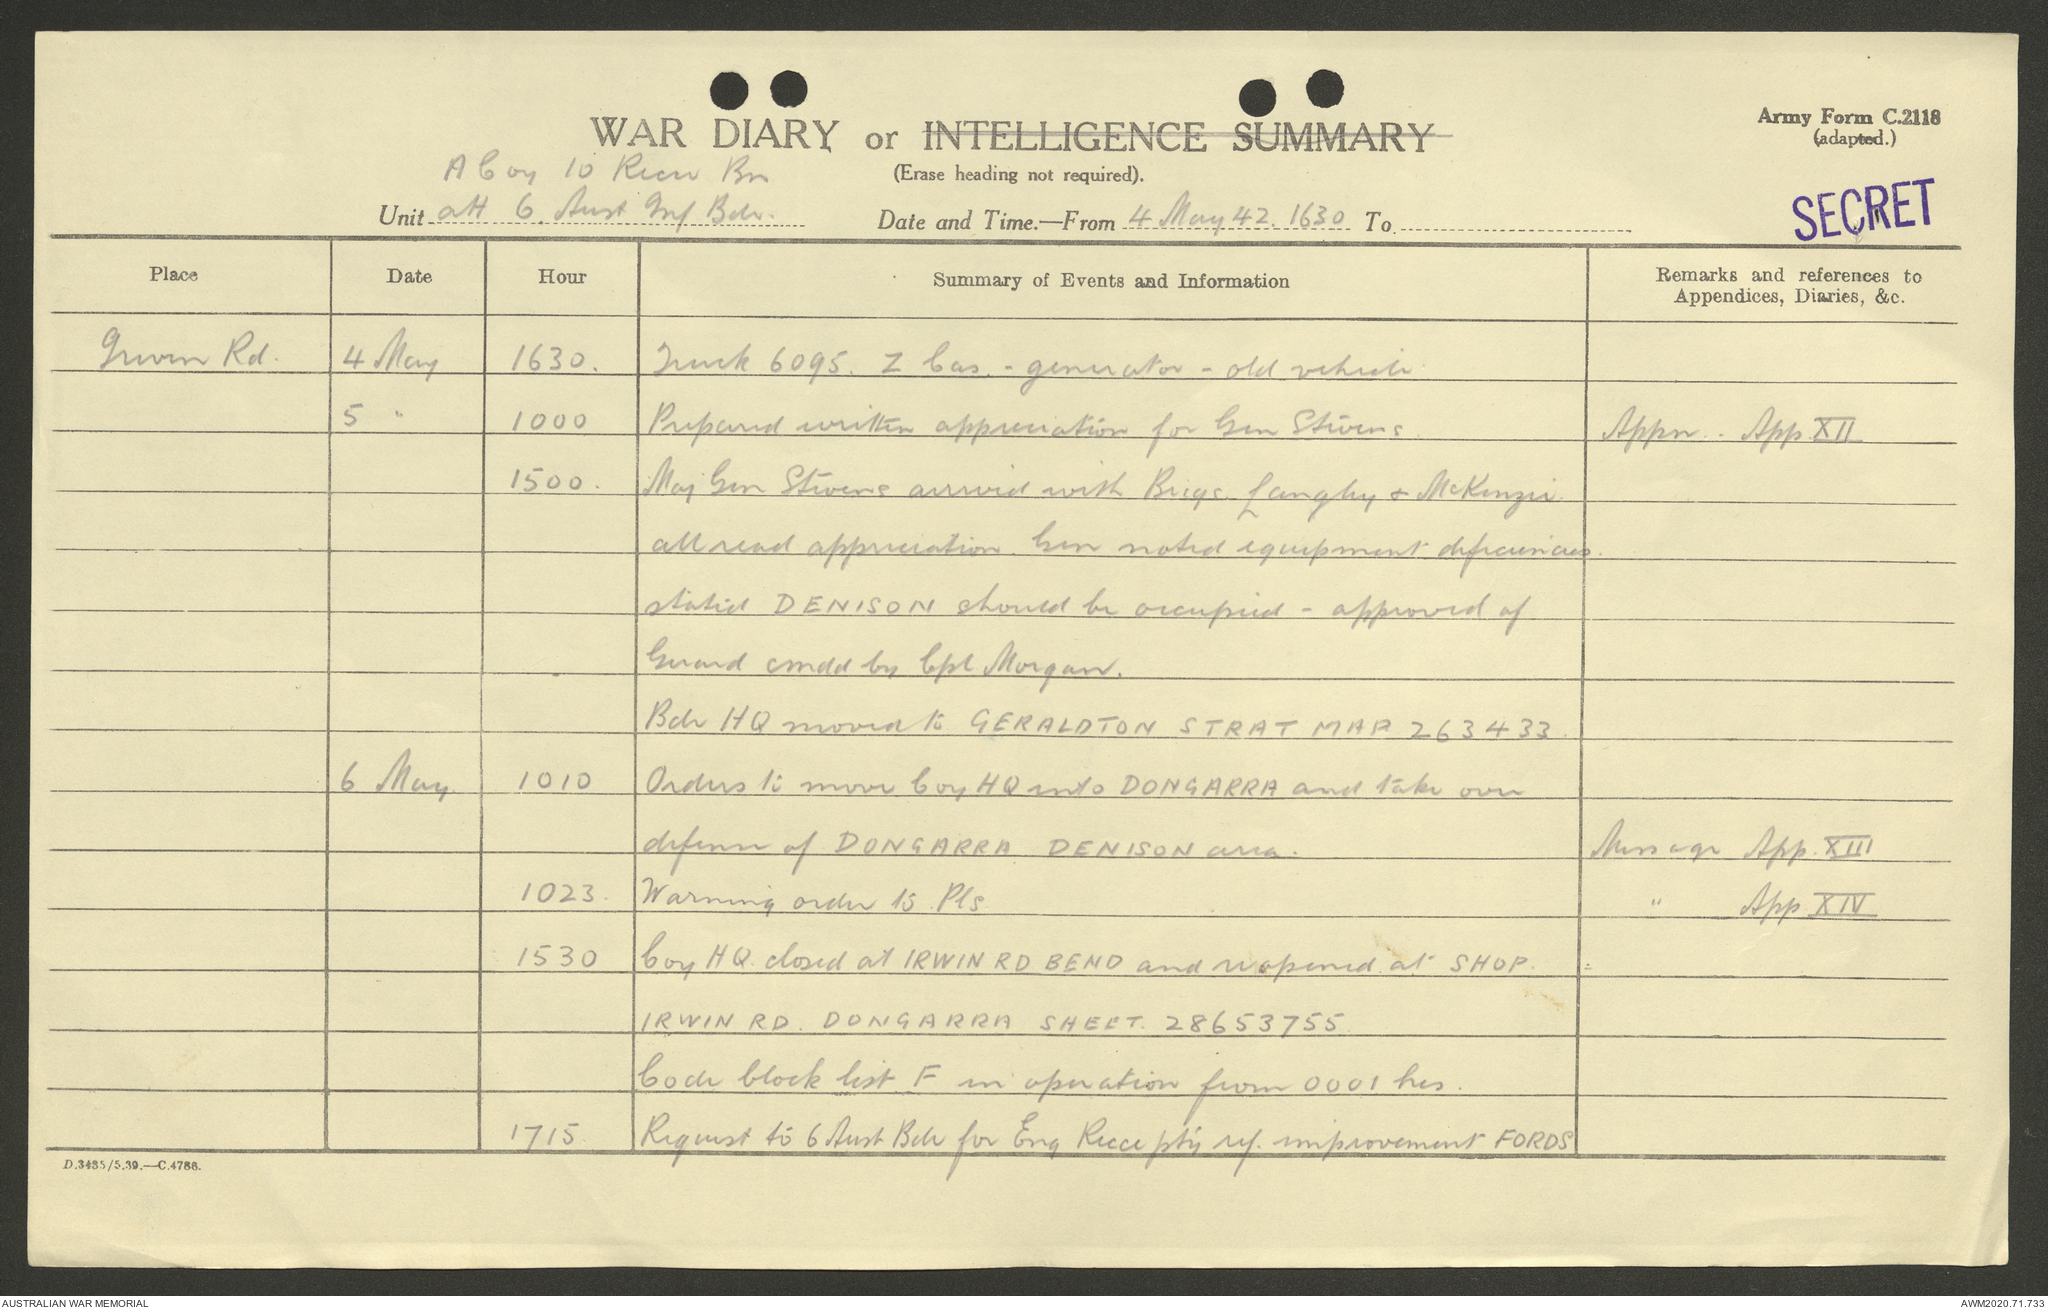 Army Form C.2118
(adapted.)
WAR DIARY or INTELLIGENCE SUMMARY
(Erase heading not required).
SECRET
A Coy 10 Recce Bn
Unit att 6. Aust Inf Bde. Date and Time.—From 4 May 42. 1630 To
Place Date Hour Summary of Events and Information Remarks and references to Appendices, Diaries, &c.
Irwin Rd. 4 May 1630. Truck 6095. Z Cas. - generator - old vehicle
5 " 1000 Prepared written appreciation for Gen Stevens. Appn. - App. XII
1500. Maj Gen Stevens arrived with Brigs. Langley & McKenzie.
all read appreciation. Gen noted equipment deficiencies.
stated DENISON should be occupied - approved of
Guard cmdd by Cpl Morgan.
Bde HQ moved to GERALDTON STRAT MAP 263433.
6 May 1010 Orders to move Coy HQ into DONGARRA and take over
defence of DONGARRA DENISON area. Message App. XIII
1023. Warning order to Pls " App XIV
1530 Coy HQ closed at IRWIN RD BEND and reopened at SHOP.
IRWIN RD. DONGARRA SHEET. 28653755
Code block list F in operation from 0001 hrs.
1715. Request to 6 Aust Bde for Eng Recce pty ref. improvement FORDS
D.3485/5.39.—C.4786.
AUSTRALIAN WAR MEMORIAL AWM2020.71.733